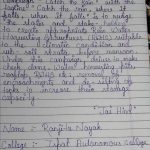 Campaign "Catch the Rain" with the
tagline "Catch the rain, where it
falls, when it falls" is to nudge
the states and stake-holders
to create appropriate Rain Water
Harvesting Structures (RWHS) suitable
to the climatic condition and
sub-soil strata before monsoon
Under this campaign, drives to make
check dams, water harvesting pits,
rooftop RWHS etc; removal of
encroachments and de-silting of
tanks to increase their storage
capacity
"Jai Hind"
Name :- Ranjita Nayak
College :- Autonomous College